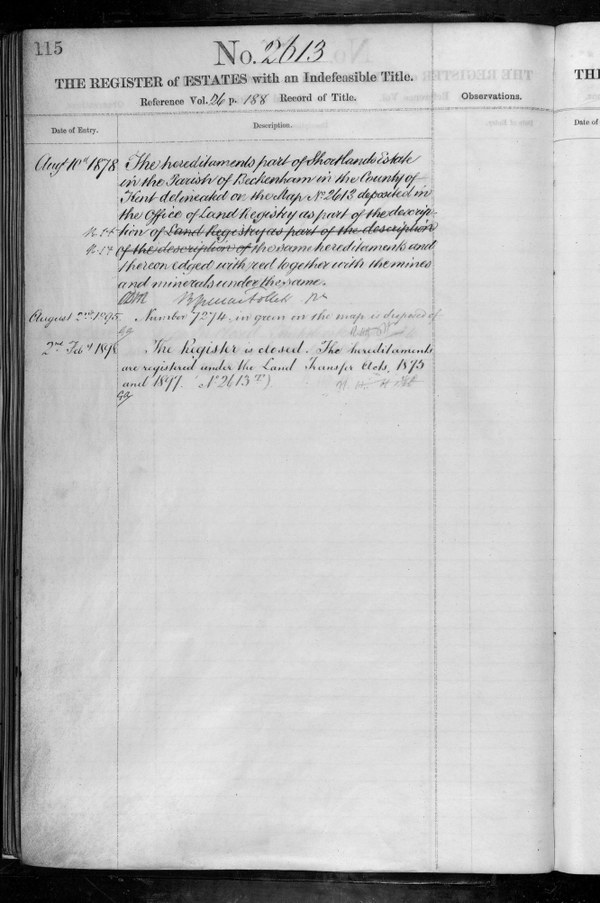 115
No. 2613
THE REGISTER of ESTATES with an Indefeasible Title.
Reference Vol. 26 p. 188 Record of Title.
Observations.
Date of Entry.
Description.
Augt 10th 1878 The hereditaments part of Shortlands Estate
in the Parish of Beckenham in the County of
Kent delineated on the Map No 2613 deposited in
the Office of Land Registry as part of the descrip-
tion of Land Registry as part of the description
of the description of the same hereditaments and
thereon edged with red together with the mines
and minerals under the same.
August 2nd 1895. Number 7274, in green on the map is disposed of
2nd Feby 1898 The Register is closed. The hereditaments
are registered under the Land Transfer Acts, 1875
and 1897. (No 2613
THE
Date of